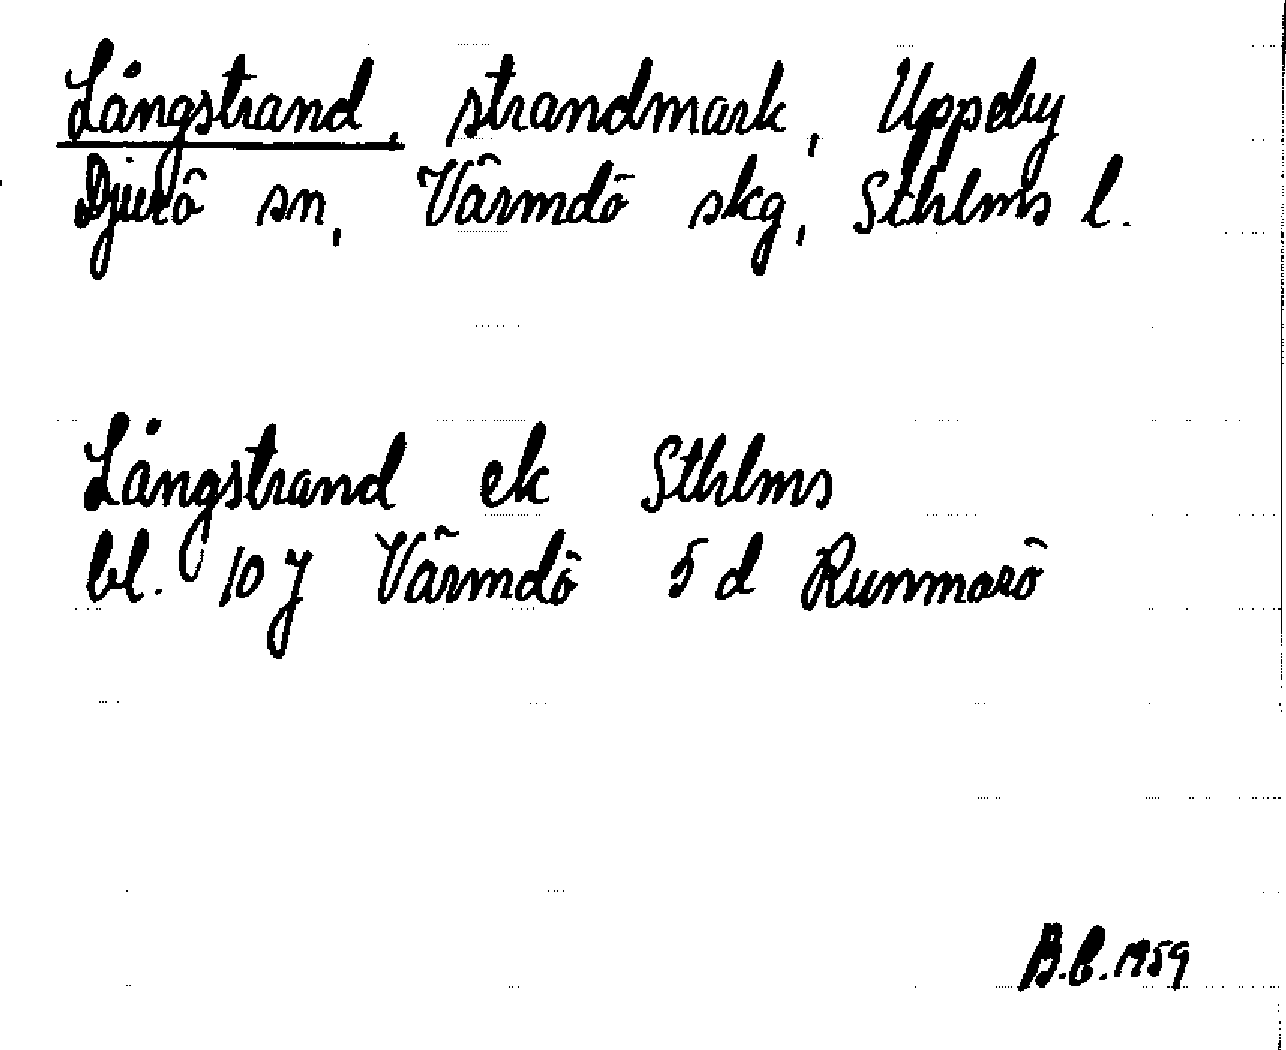 Långstrand, strandmark, Uppeby
Djurö sn, Värmdö skg, Sthlms l.
Långstrand ek Sthlms
bl. 10 J Värmdö 5 d Runmarö
B.C. 1959